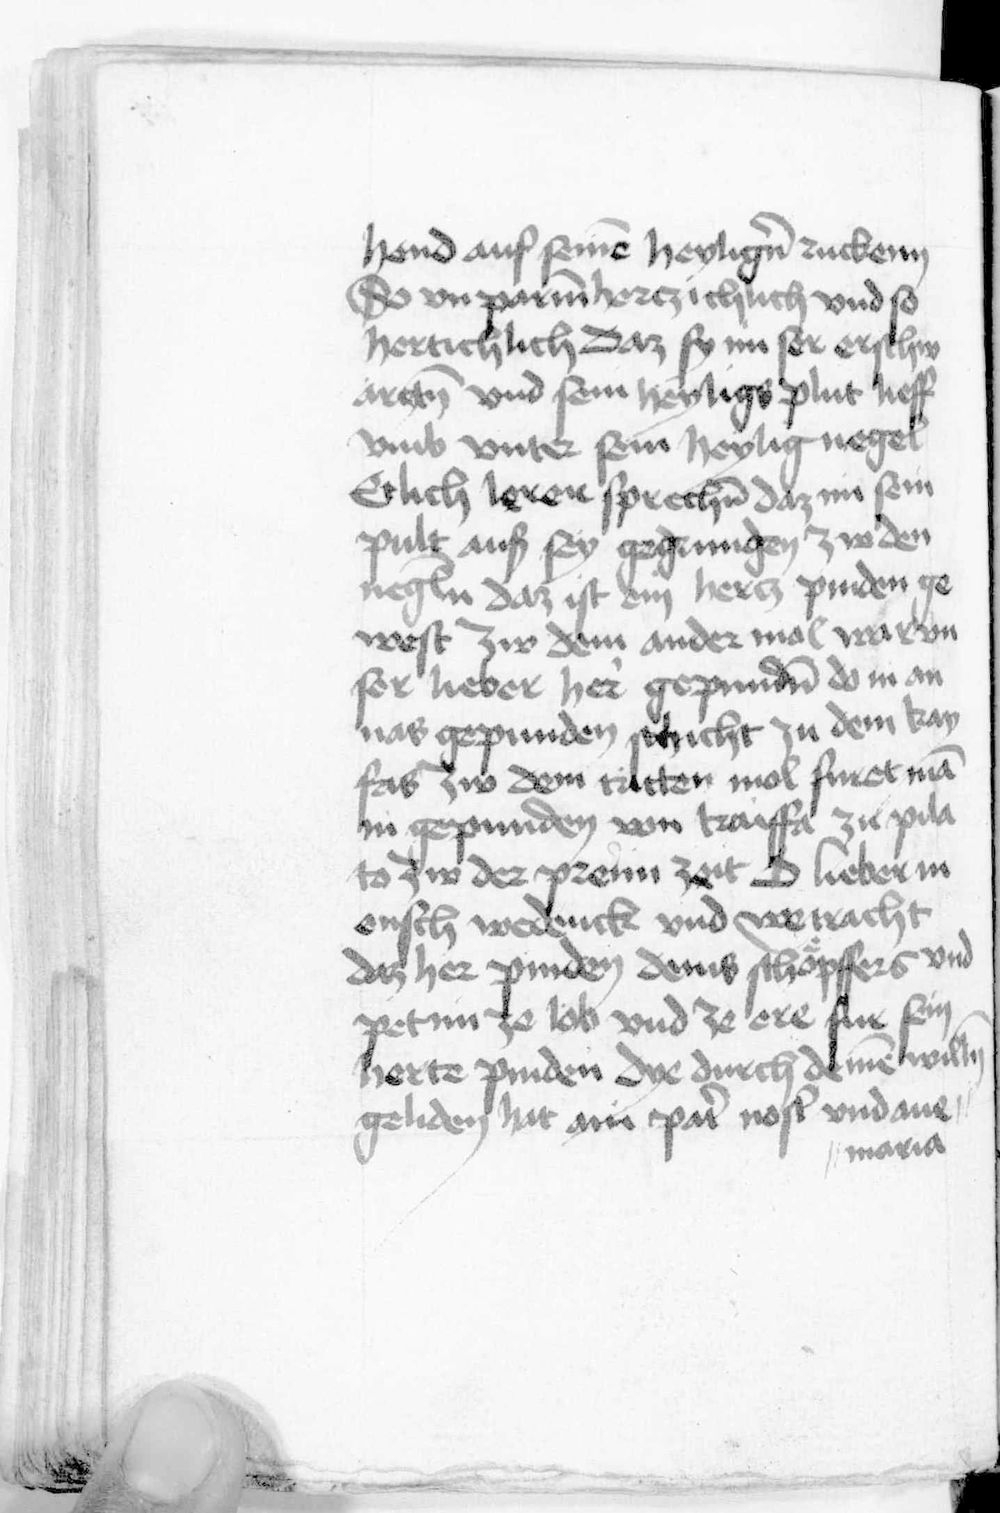 hend auf seinē heylign̄ ruckenn
So vn parm̄herczichlich vnd so
hertichlich Daz sy im ser erschw
arctn̄ vnd sein heyligs plut lieff
vmb vnter sein heylig negel
Etlich lerer sprechn̄ daz im sein
pult auß sey gedrungen zw den
negln̄ daz ist ein hercz pinden ge
west Zw dem ander mal war vn
ser lieber her gepundn̄ do in an
nas gepunden schicht zu dem kay
fas Zw dem tritten mol furet mā
in gepunden von kaiffa zu pila
to Zw der preim zeit O lieber m
ensch wedenck vnd wetracht
daz her pinden deins schöpffers vnd
pet im ze lob vnd ze ere fur sein
herte pinden dye durch deinē willn̄
geliden hat ain pat nost vnd aue
maria